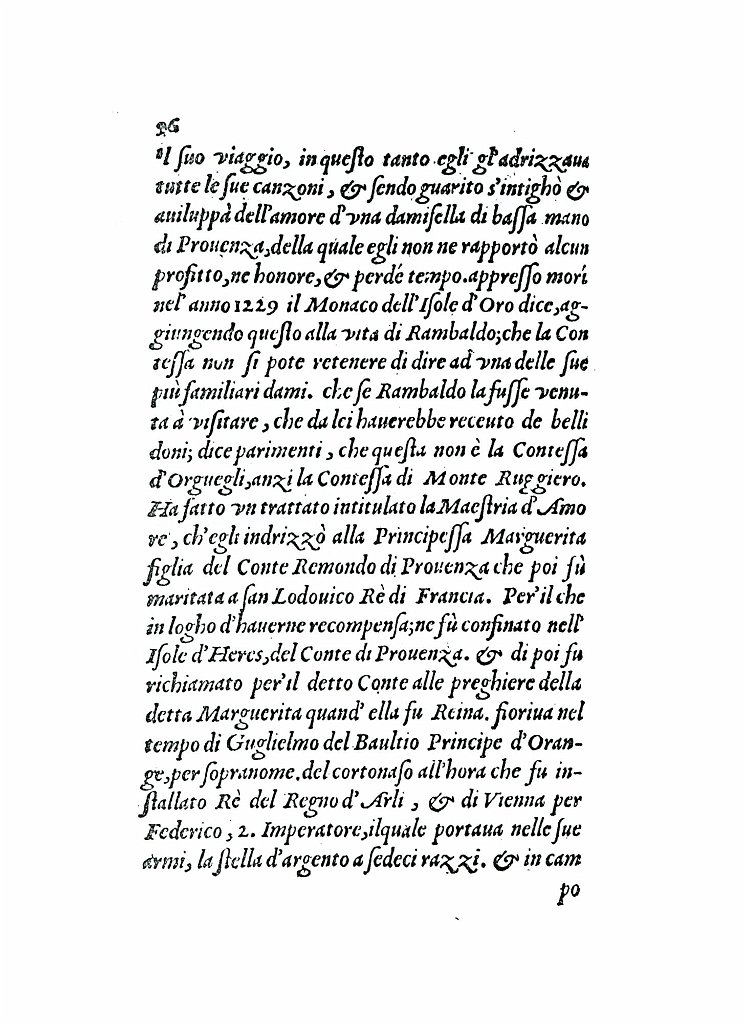 96
Il ſuo viaggio, in queſto tanto egli gl'adrizzaua
tutte le ſue canzoni, & ſendo guarito s'intighò &
auiluppà dell'amore d'vna damiſella di baſſa mano
di Prouenza,della quale egli non ne rapportò alcun
profitto,ne honore,& perdé tempo.appreſſo morì
nel'anno 1229 il Monaco dell'Iſole d'Oro dice,ag-
giungendo queſto alla vita di Rambaldo;che la Con
teſſa non ſi pote retenere di dire ad vna delle ſue
più familiari dami. che ſe Rambaldo la fuſſe venu-
ta à viſitare, che da lei hauerebbe receuto de belli
doni; dice parimenti, che queſta non è la Conteſſa
d'Orguegli,anzi la Conteſſa di Monte Ruggiero.
Ha fatto vn trattato intitulato la Maeſtria d'Amo
re, ch'egli indrizzò alla Principeſſa Marguerita
figlia del Conte Remondo di Prouenza che poi fù
maritata a ſan Lodouico Rè di Francia. Per'il che
in logho d'hauerne recompenſa;ne fù confinato nell'
Iſole d'Heres,del Conte di Prouenza. & di poi fu
richiamato per'il detto Conte alle preghiere della
detta Marguerita quand' ella fu Reina. fioriua nel
tempo di Guglielmo del Baultio Principe d'Oran-
ge,per ſopranome.del cortonaſo all'hora che fu in-
ſtallato Rè del Regno d'Arli, & di Vienna per
Federico, 2. Imperatore,ilquale portaua nelle ſue
armi, la ſtella d'argento a ſedeci razzi. & in cam
po